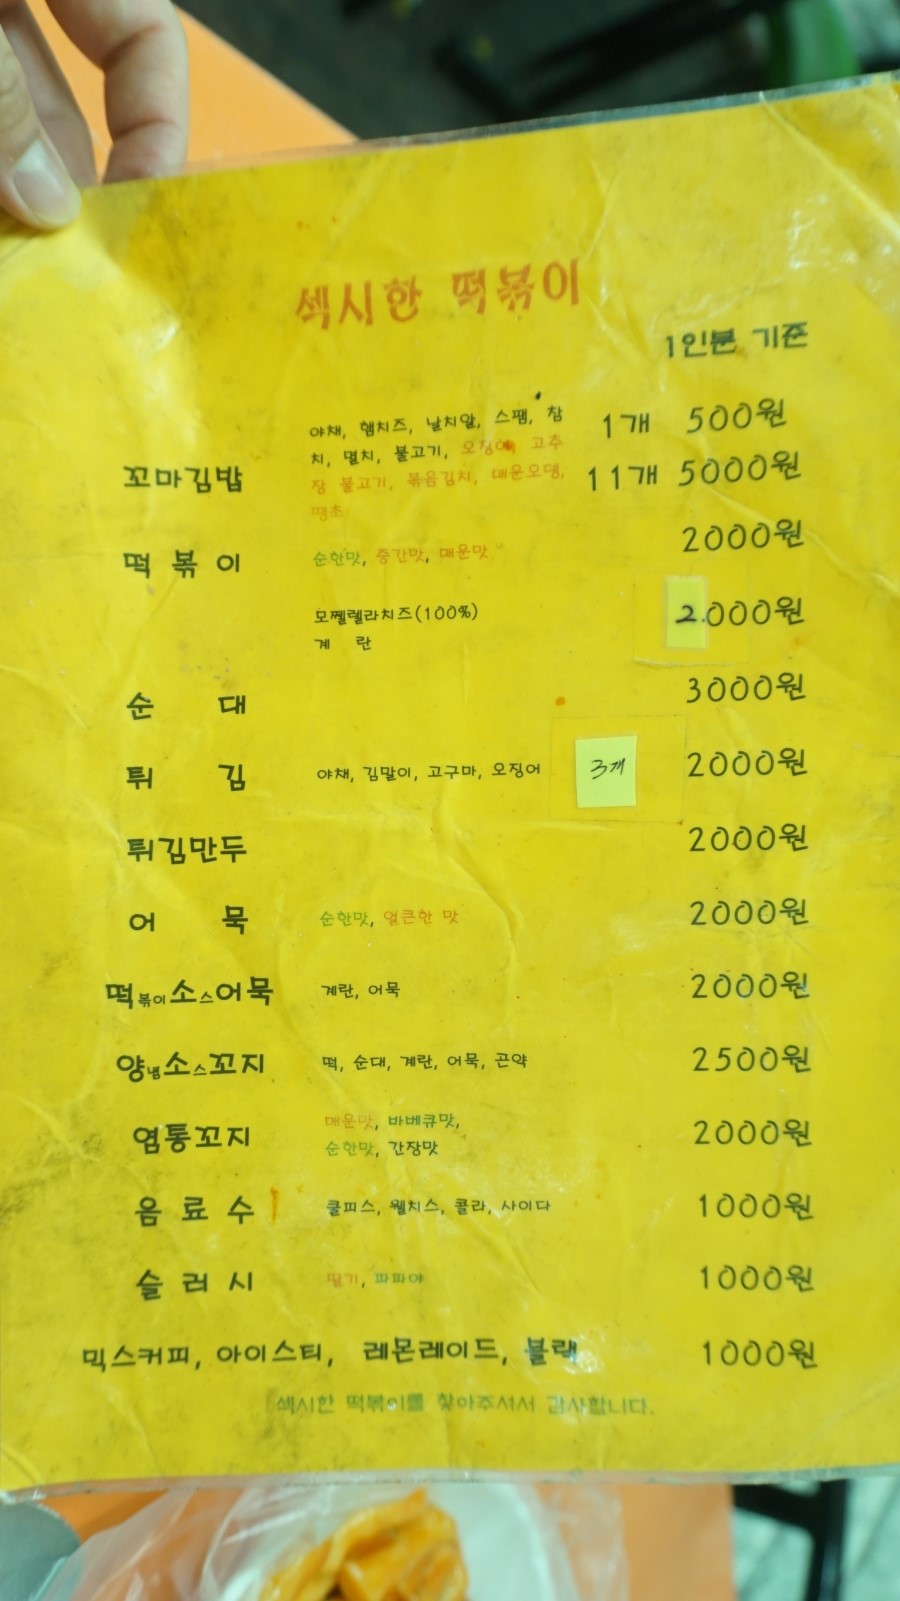 섹시한 떡볶이
1인분 기준
꼬마김밥 야채, 햄치즈, 날치알, 스팸, 참 1개 500원
치, 멸치, 불고기, 오징어, 고추 11개 5000원
장 불고기, 볶음김치, 매운오뎅,
땡초
떡볶이 순한맛, 중간맛, 매운맛 2000원
모쩰렐라치즈(100%) 2.000원
계 란
순 대 3000원
튀 김 야채, 김말이, 고구마, 오징어 3개 2000원
튀김만두 2000원
어 묵 순한맛, 얼큰한 맛 2000원
떡볶이소스어묵 계란, 어묵 2000원
양념소스꼬지 떡, 순대, 계란, 어묵, 곤약 2500원
염통꼬지 매운맛, 바베큐맛, 2000원
순한맛, 간장맛
음료수 쿨피스, 웰치스, 콜라, 사이다 1000원
슬러시 딸기, 파파야 1000원
믹스커피, 아이스티, 레몬레이드, 블랙 1000원
섹시한 떡볶이를 찾아주셔서 감사합니다.